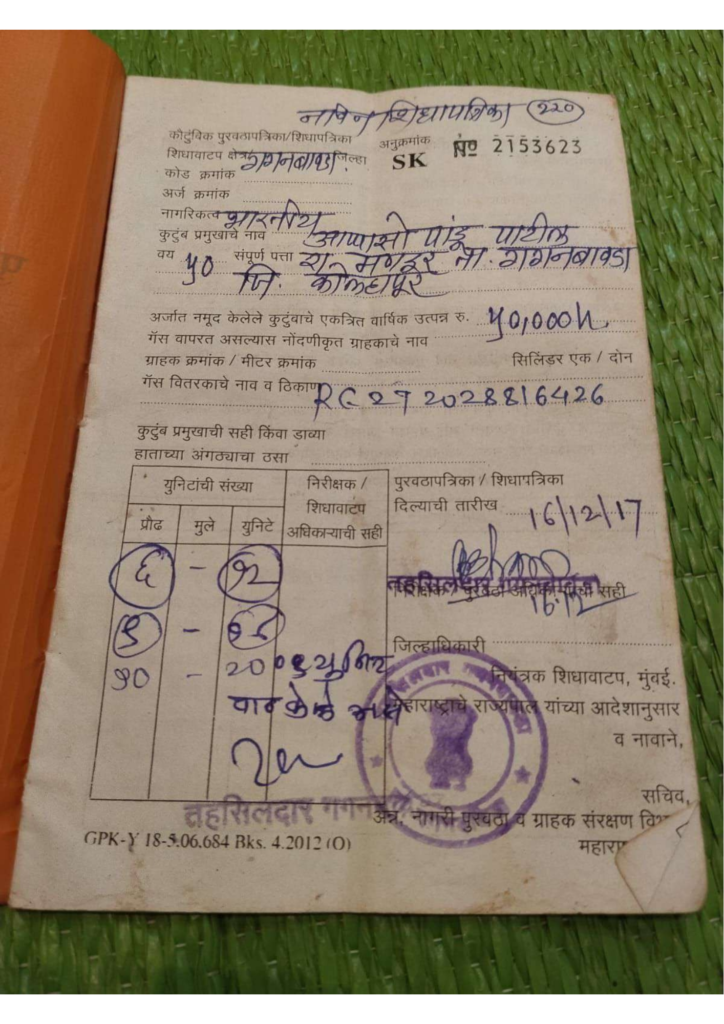 नविन शिधापत्रिका (२२०)
कौटुंबिक पुरवठापत्रिका/शिधापत्रिका अनुक्रमांक
शिधावाटप क्षेत्र गगनबावडा जिल्हा SK No 2153623
कोड क्रमांक
अर्ज क्रमांक
नागरिकत्व भारतीय
कुटुंब प्रमुखाचे नाव आप्पासो पांडू पाटील
वय ५० संपूर्ण पत्ता रा. मणदूर ता. गगनबावडा
जि. कोल्हापूर
अर्जात नमूद केलेले कुटुंबाचे एकत्रित वार्षिक उत्पन्न रु. ५०,०००/-
गॅस वापरत असल्यास नोंदणीकृत ग्राहकाचे नाव
ग्राहक क्रमांक / मीटर क्रमांक सिलिंडर एक / दोन
गॅस वितरकाचे नाव व ठिकाण RC 272028816426
कुटुंब प्रमुखाची सही किंवा डाव्या
हाताच्या अंगठ्याचा ठसा
युनिटांची संख्या निरीक्षक / शिधावाटप अधिकाऱ्याची सही
प्रौढ मुले युनिटे
६ - १२
९ - १८
१० - 20
पुरवठापत्रिका / शिधापत्रिका
दिल्याची तारीख 16/12/17
तहसिलदार गगनबावडा
निरीक्षक / पुरवठा अधिकाऱ्याची सही
16.12
जिल्हाधिकारी
नियंत्रक शिधावाटप, मुंबई.
महाराष्ट्राचे राज्यपाल यांच्या आदेशानुसार
व नावाने,
सचिव,
अन्न, नागरी पुरवठा व ग्राहक संरक्षण
तहसिलदार
GPK-Y 18-5.06.684 Bks. 4.2012 (O)